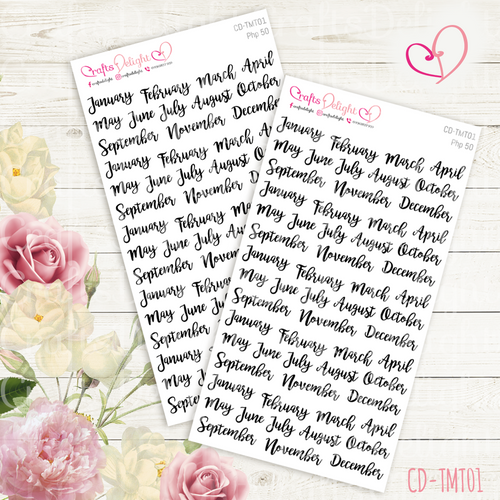 CD-TMT01
Php 50
Crafts Delight
craftsdelight craftsdelight
January February March April
May June July August October
September November December
January February March
May June July August
September November
January February
May June July
September
January February
May June July
September
January
May June
September
CD-TMT01
Php 50
Crafts Delight
craftsdelight craftsdelight
January February March April
May June July August October
September November December
January February March April
May June July August October
September November December
January February March April
May June July August October
September November December
January February March April
May June July August October
September November December
January February March April
May June July August October
September November December
CD-TMT01